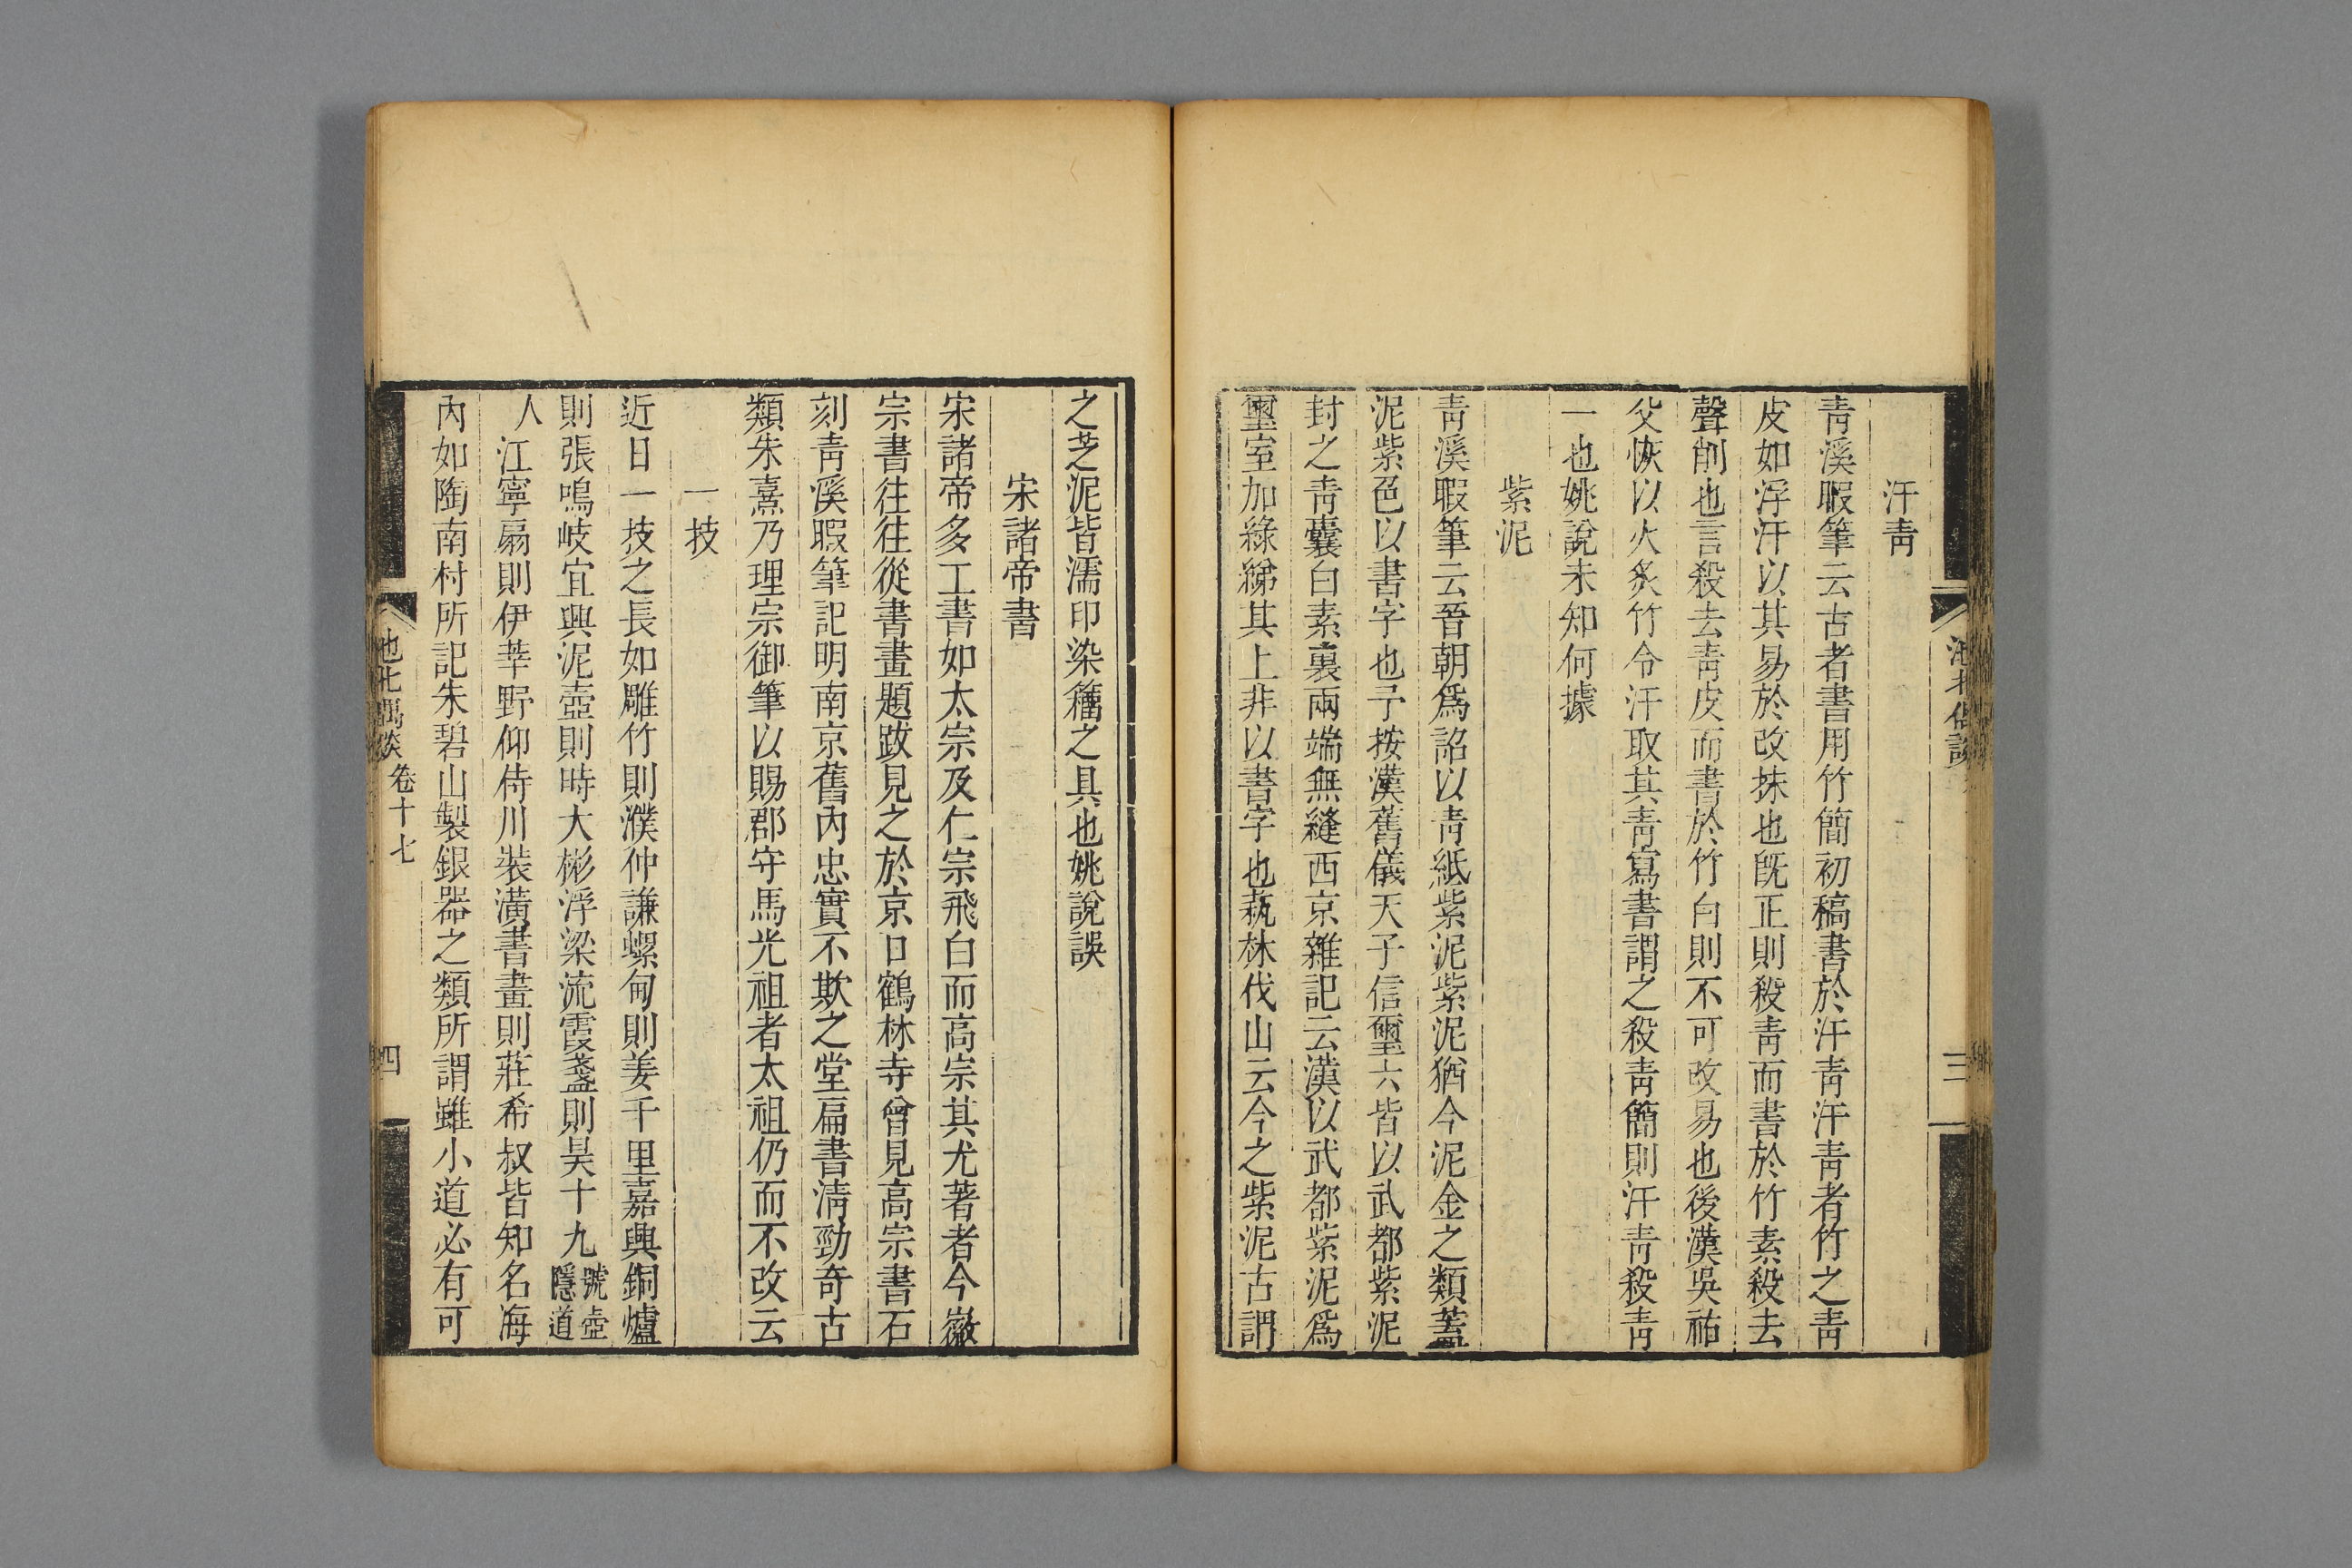 汗靑
靑溪暇筆云古者書用竹簡初稿書於汗靑汗靑者竹之靑
皮如浮汗以其易於改抹也旣正則殺靑而書於竹素殺去
聲削也言殺去靑皮而書於竹白則不可改易也後漢吳祐
父恢以火炙竹令汗取其靑寫書謂之殺靑簡則汗靑殺靑
一也姚說未知何據
紫泥
靑溪暇筆云晉朝爲詔以靑紙紫泥紫泥猶今泥金之類蓋
泥紫色以書字也予按漢舊儀天子信璽六皆以武都紫泥
封之靑囊白素裏兩端無縫西京雜記云漢以武都紫泥爲
璽室加綠綈其上非以書字也蓺林伐山云今之紫泥古謂
三
之芝泥皆濡印染籀之具也姚說誤
宋諸帝書
宋諸帝多工書如太宗及仁宗飛白而高宗其尤著者今徽
宗書往往從書畫題跋見之於京口鶴林寺曾見高宗書石
刻靑溪暇筆記明南京舊內忠實不欺之堂扁書淸勁奇古
類朱熹乃理宗御筆以賜郡守馬光祖者太祖仍而不改云
一技
近日一技之長如雕竹則濮仲謙螺甸則姜千里嘉興銅爐
則張鳴岐宜興泥壺則時大彬浮梁流霞盞則昊十九號壺隱道
人江寧扇則伊莘野仰侍川裝潢書畫則莊希叔皆知名海
內如陶南村所記朱碧山製銀器之類所謂雖小道必有可
卷十七
四